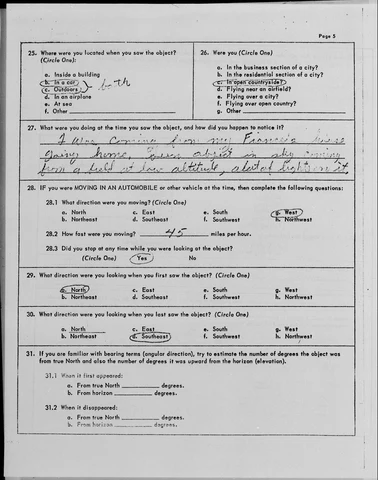 Page 5
25. Where were you located when you saw the object?
(Circle One):
a. Inside a building
b. In a car
c. Outdoors
both
d. In an airplane
e. At sea
f. Other
26. Were you (Circle One)
a. In the business section of a city?
b. In the residential section of a city?
c. In open countryside?
d. Flying near an airfield?
e. Flying over a city?
f. Flying over open country?
g. Other
27. What were you doing at the time you saw the object, and how did you happen to notice it?
I was coming from my Fiancee's house
going home, saw object in sky coming
from a field at low altitude, a lot of lights on it
28. IF you were MOVING IN AN AUTOMOBILE or other vehicle at the time, then complete the following questions:
28.1 What direction were you moving? (Circle One)
a. North c. East e. South g. West
b. Northeast d. Southeast f. Southwest h. Northwest
28.2 How fast were you moving? 45 miles per hour.
28.3 Did you stop at any time while you were looking at the object?
(Circle One) Yes No
29. What direction were you looking when you first saw the object? (Circle One)
a. North c. East e. South g. West
b. Northeast d. Southeast f. Southwest h. Northwest
30. What direction were you looking when you last saw the object? (Circle One)
a. North c. East e. South g. West
b. Northeast d. Southeast f. Southwest h. Northwest
31. If you are familiar with bearing terms (angular direction), try to estimate the number of degrees the object was
from true North and also the number of degrees it was upward from the horizon (elevation).
31.1 When it first appeared:
a. From true North degrees.
b. From horizon degrees.
31.2 When it disappeared:
a. From true North degrees.
b. From horizon degrees.